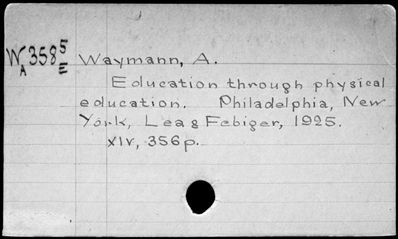 W 3585 Waymann, A.
A E
Education through physical
education. Philadelphia, New
York, Lea & Febiger, 1925.
XIV, 356 p.